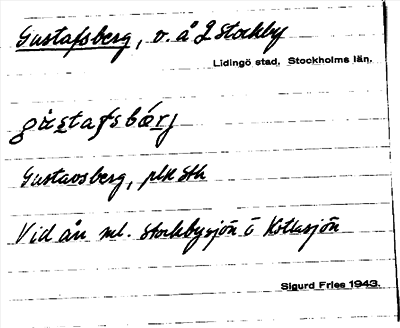 Gustafsberg, v. å 2 Stockby
Lidingö stad. Stockholms län.
gustafsbærj
Gustavsberg, plk Sth
Vid ån ml. Stockbysjön o Kottlasjön
Sigurd Fries 1943.